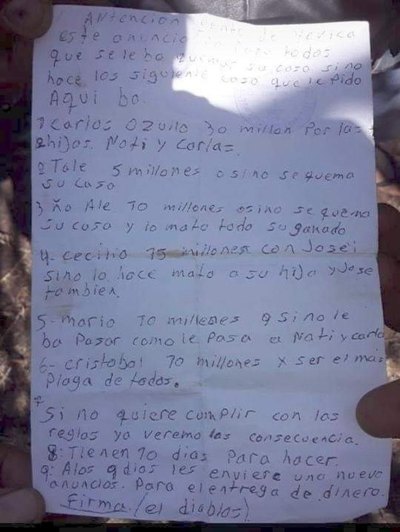 Antencion
este anuncio se dedica
que se le ba quemar su casa si no
hace los siguiente caso que le Pido
Aqui bo.
1 Carlos Ozuilo 30 millon Por las
2hijas. Nati y Carlas.
2 Tale 5 millones o sino se quema
su casa
3 ño Ale 10 millones osino se quema
su casa y lo mato todo su ganado
4- cecino 15 millones con Jose i
sino lo hace mato a su hija y Jose
tambien.
5- mario 10 millenes q si no le
ba Pasar como le Pasa a Nati y carla
6- cristobal 70 millones x ser el mas
Plaga de todos.
7
Si no quiere cumplir con las
reglos ya veremo las consecuencia.
8- Tienen 10 dias Para hacer.
9- Alos 9 dias les enviere una nuevo
anuncios. Para el entrega de dinero.
Firma (el diablos)